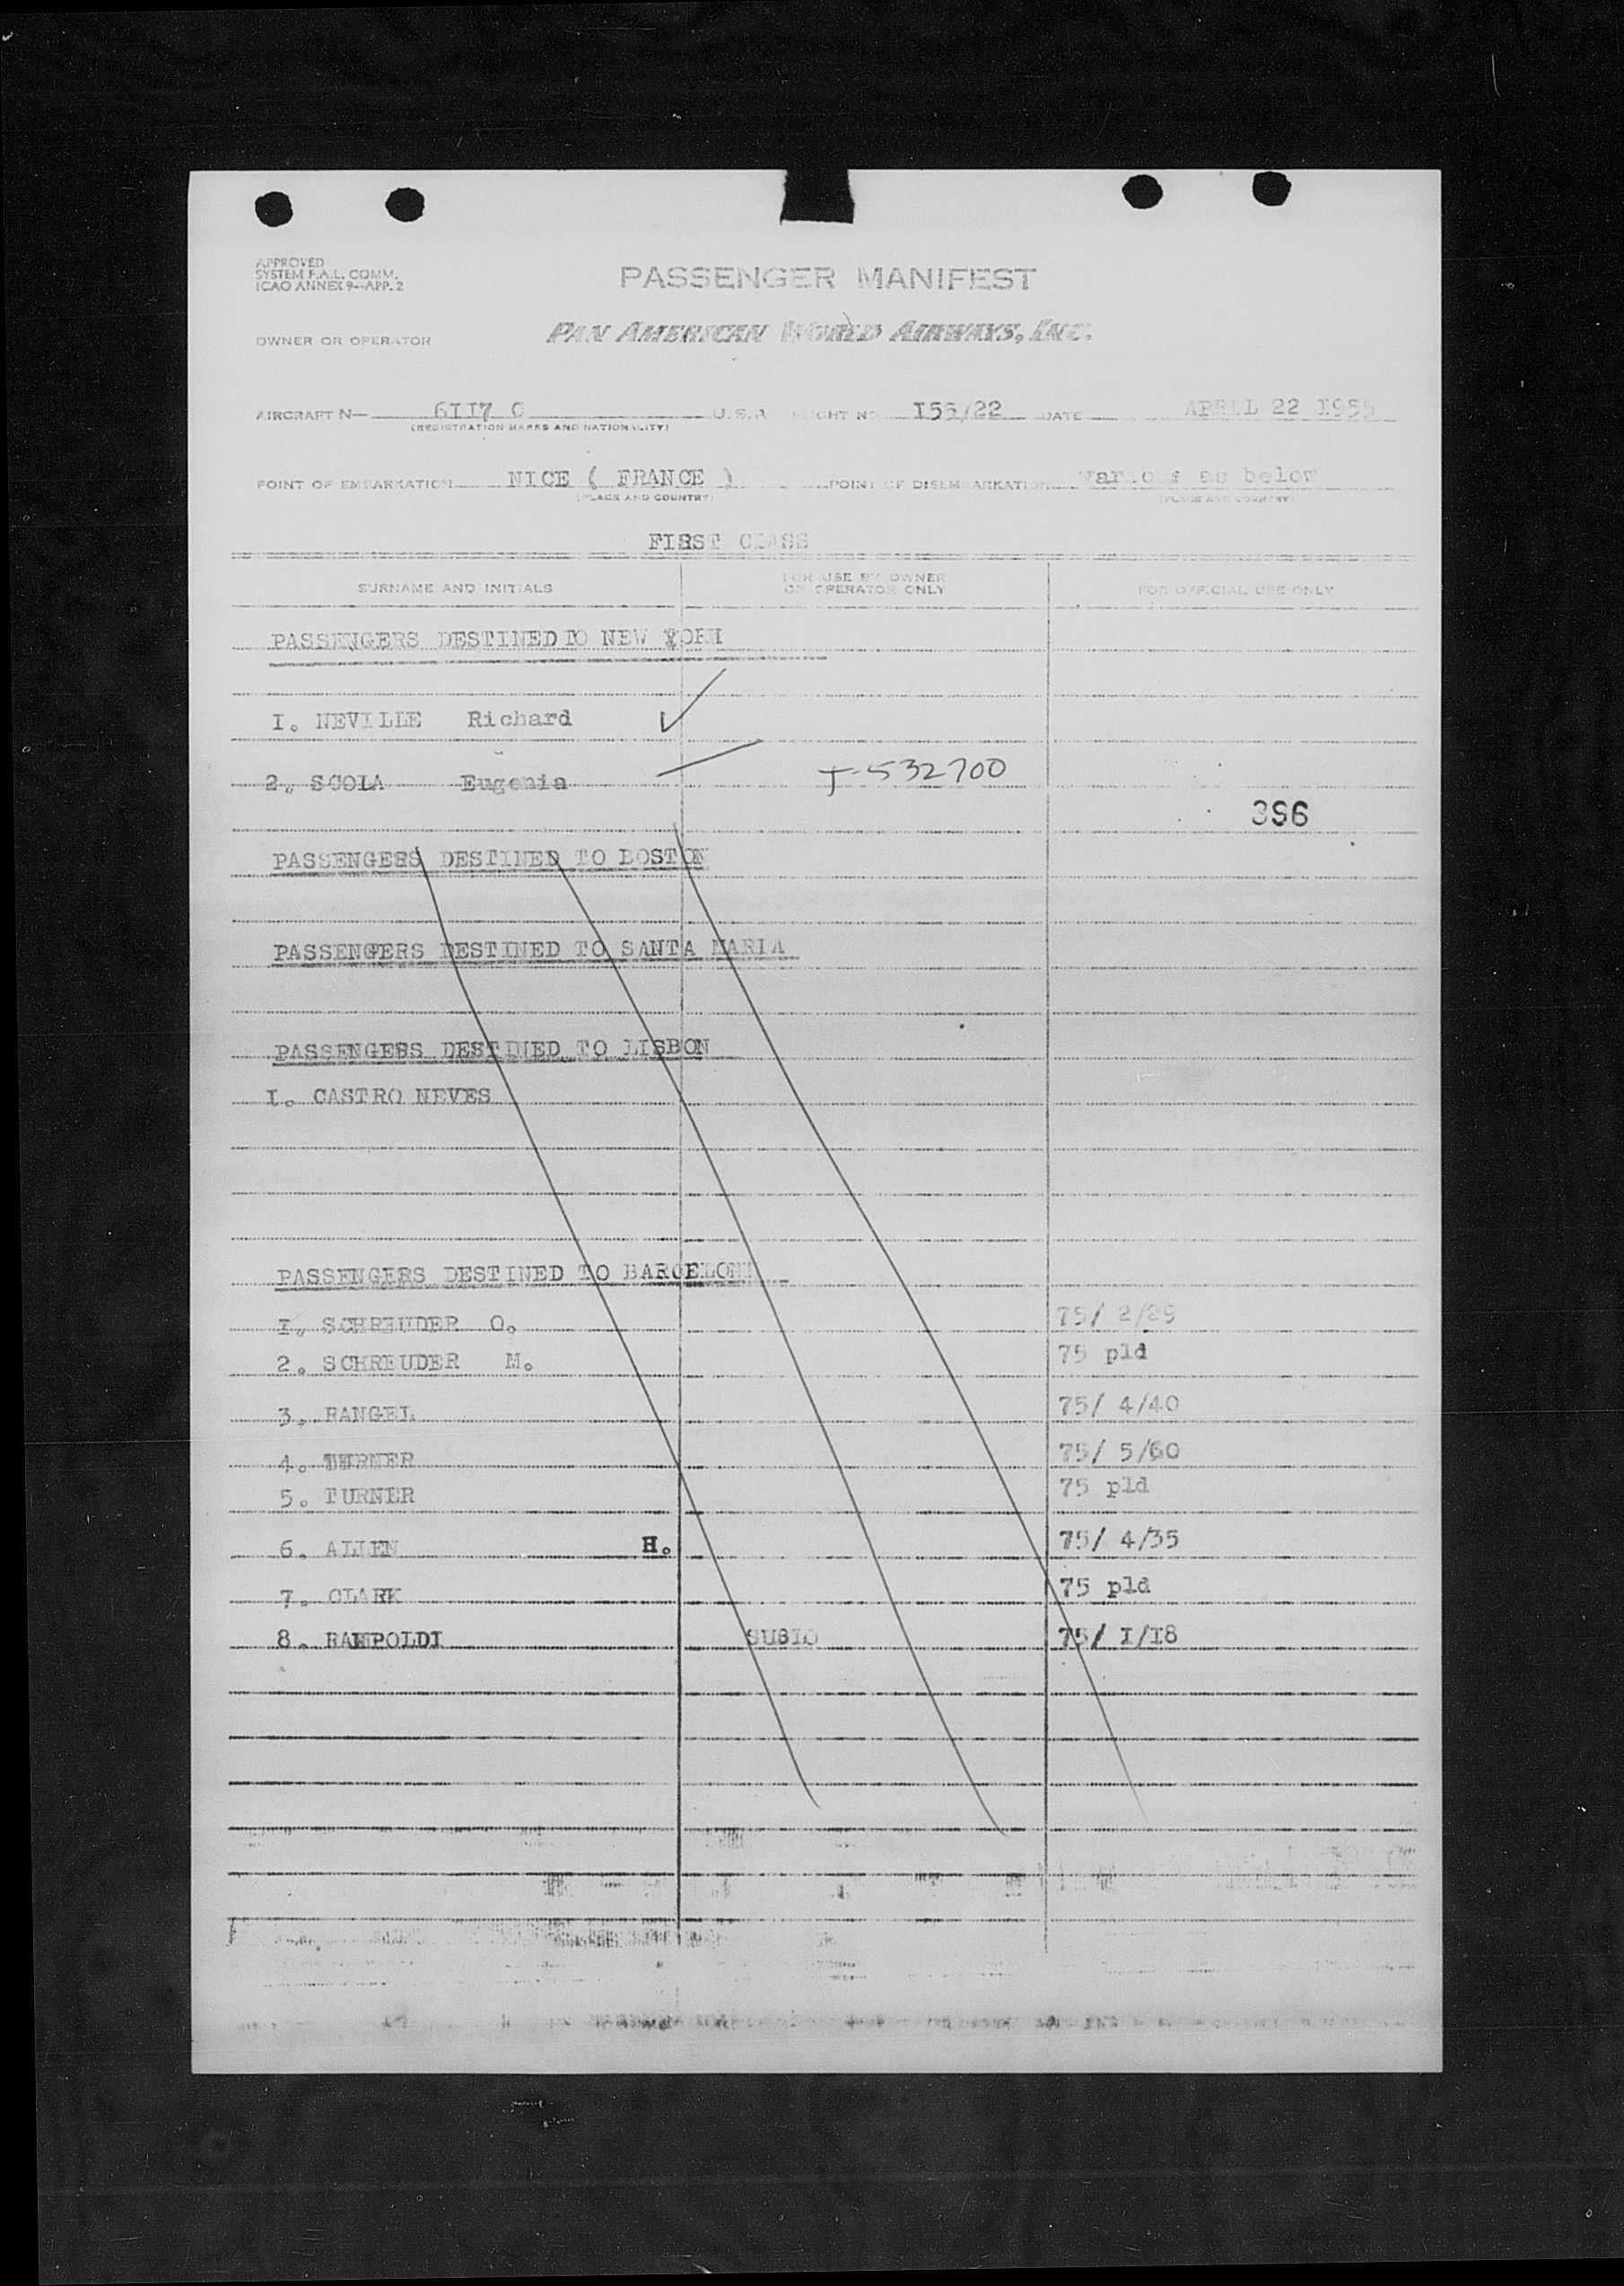 APPROVED
SYSTEM F.A.L. COMM.
ICAO ANNEX 9--APP. 2
PASSENGER MANIFEST
OWNER OR OPERATOR PAN AMERICAN WORLD AIRWAYS, INC.
AIRCRAFT N— 6II7 C U.S.A FLIGHT No I55/22 DATE APRIL 22 I955
(REGISTRATION MARKS AND NATIONALITY)
POINT OF EMBARKATION NICE ( FRANCE ) POINT OF DISEMBARKATION Various as below
(PLACE AND COUNTRY) (PLACE AND COUNTRY)
FIRST CLASS
SURNAME AND INITIALS FOR USE BY OWNER OR OPERATOR ONLY FOR OFFICIAL USE ONLY
PASSENGERS DESTINED TO NEW YORK
I. NEVILLE Richard
2. SCOLA Eugenia T-532700
396
PASSENGERS DESTINED TO BOSTON
PASSENGERS DESTINED TO SANTA MARIA
PASSENGERS DESTINED TO LISBON
I. CASTRO NEVES
PASSENGERS DESTINED TO BARCELONE
I. SCHREUDER O. 75/ 2/29
2. SCHREUDER M. 75 pld
3. RANGEL 75/ 4/40
4. TURNER 75/ 5/60
5. TURNER 75 pld
6. ALLEN H. 75/ 4/35
7. CLARK 75 pld
8. RAMPOLDI 75/ I/I8